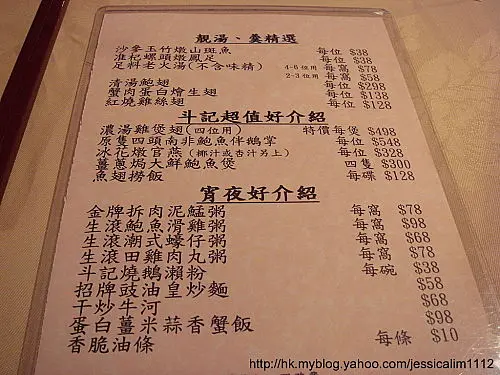 靚湯、羹精選
沙參玉竹燉山斑魚 每位 $38
淮杞螺頭燉鳳足 每位 $38
足料老火湯(不含味精) 4-6位用 每窩 $78
2-3位用 每窩 $58
清湯鮑翅 每位 $298
蟹肉蛋白燴生翅 每位 $138
紅燒雞絲翅 每位 $128
斗記超值好介紹
濃湯雞煲翅(四位用) 特價每煲 $498
原隻四頭南非鮑魚伴鵝掌 每位 $548
冰花燉官燕(椰汁或杏汁另上) 每位 $328
薑蔥焗大鮮鮑魚煲 四隻 $300
魚翅撈飯 每碟 $128
宵夜好介紹
金牌拆肉泥鯭粥 每窩 $78
生滾鮑魚滑雞粥 每窩 $98
生滾潮式蠔仔粥 每窩 $68
生滾田雞肉丸粥 每窩 $78
斗記燒鵝瀨粉 每碗 $38
招牌豉油皇炒麵 $58
干炒牛河 $68
蛋白薑米蒜香蟹飯 $98
香脆油條 每條 $10
http://hk.myblog.yahoo.com/jessicalim1112